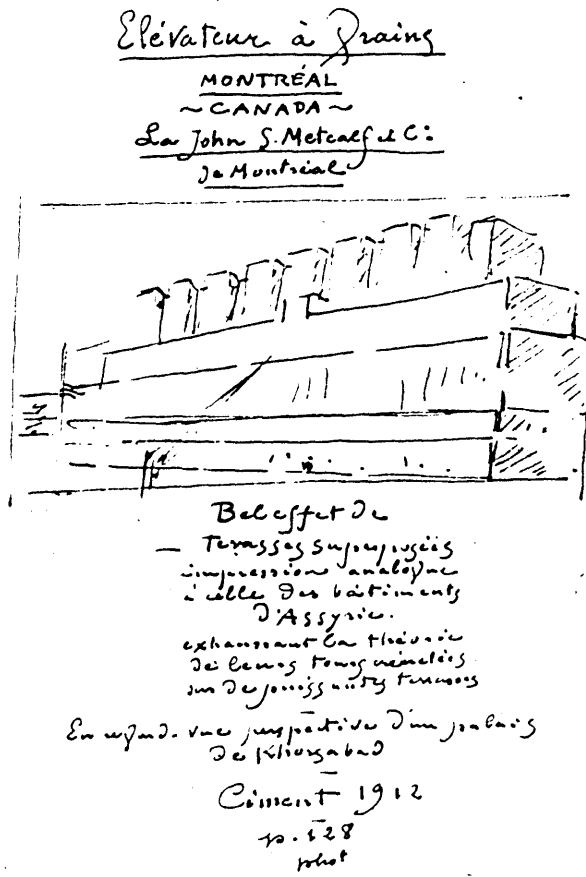 Elévateur à Grains
MONTRÉAL
~ CANADA ~
La John S. Metcalf et Cº
de Montréal
Bel effet de
— Terasses superposées
impression analogue
à celle des bâtiments
d'Assyrie.
exhaussant la théorie
de leurs tours crénelées
sur de puissantes terrasses
En regard. vue perspective d'un palais
de Khorsabad
Ciment 1912
p. 128
phot